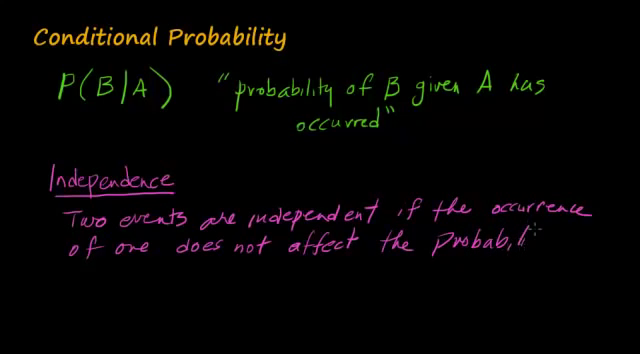 Conditional Probability
P(B/A) "probability of B given A has
occurred"
Independence
Two events are independent if the occurrence
of one does not affect the probabili